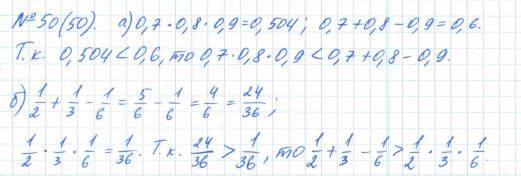 №50(50). а) 0,7·0,8·0,9=0,504; 0,7+0,8-0,9=0,6.
Т.к. 0,504<0,6, то 0,7·0,8·0,9<0,7+0,8-0,9.
б) 1/2 + 1/3 - 1/6 = 5/6 - 1/6 = 4/6 = 24/36;
1/2 · 1/3 · 1/6 = 1/36. Т.к. 24/36 > 1/36, то 1/2 + 1/3 - 1/6 > 1/2 · 1/3 · 1/6.